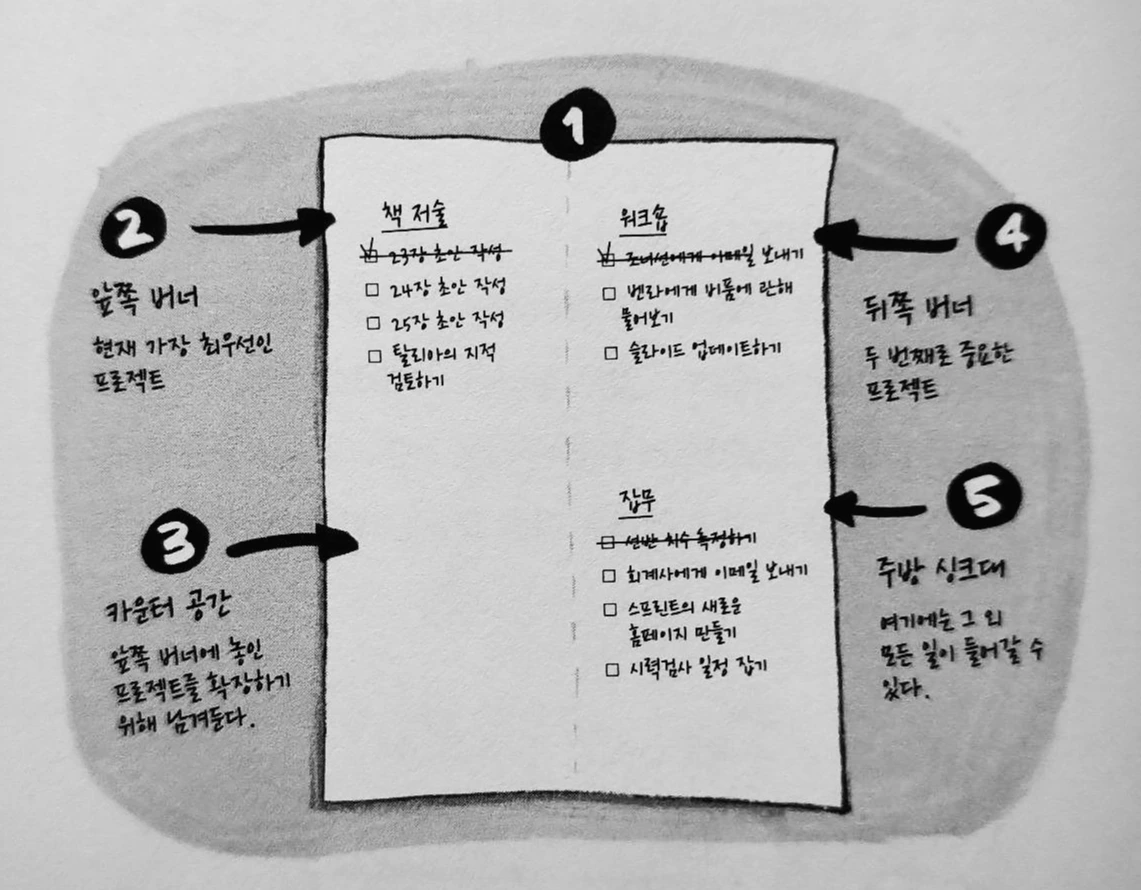 1
2
앞쪽 버너
현재 가장 최우선인
프로젝트
책 저술
23장 초안 작성
24장 초안 작성
25장 초안 작성
탈리아의 지적
검토하기
3
카운터 공간
앞쪽 버너에 놓인
프로젝트를 확장하기
위해 남겨둔다.
워크숍
조너선에게 이메일 보내기
벤라에게 비품에 관해
물어보기
슬라이드 업데이트하기
4
뒤쪽 버너
두 번째로 중요한
프로젝트
잡무
선반 치수 측정하기
회계사에게 이메일 보내기
스프린트의 새로운
홈페이지 만들기
시력검사 일정 잡기
5
주방 싱크대
여기에는 그 외
모든 일이 들어갈 수
있다.